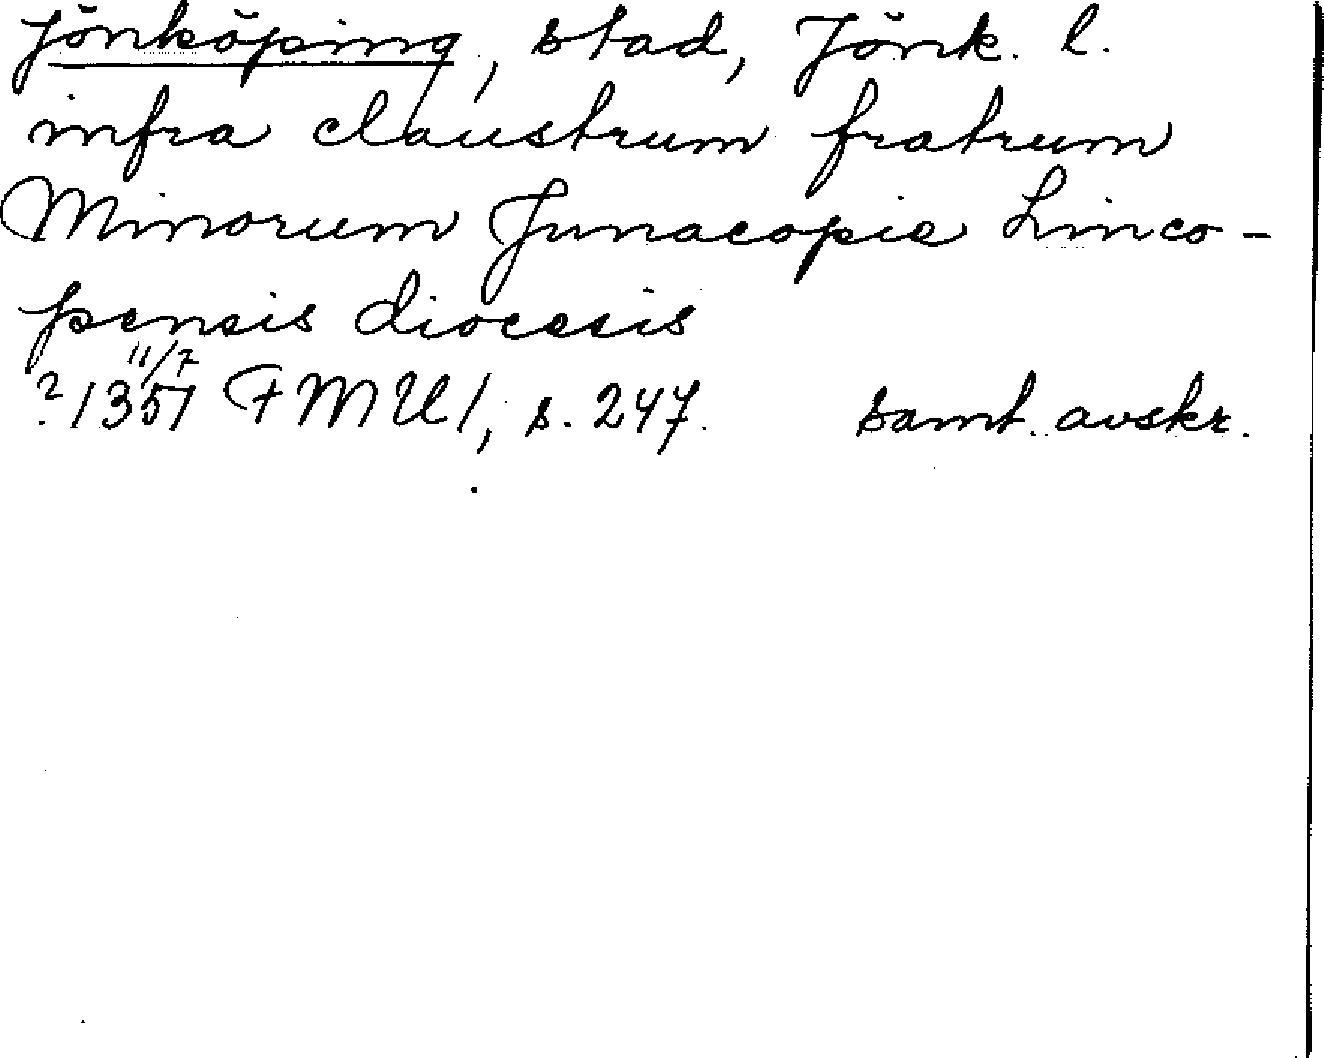 Jönköping, stad, Jönk. l.
infra claustrum fratrum
Minorum Junacopie Linco-
pensis diocesis
11/7
? 1351 FMU 1, s. 247. samt. avskr.